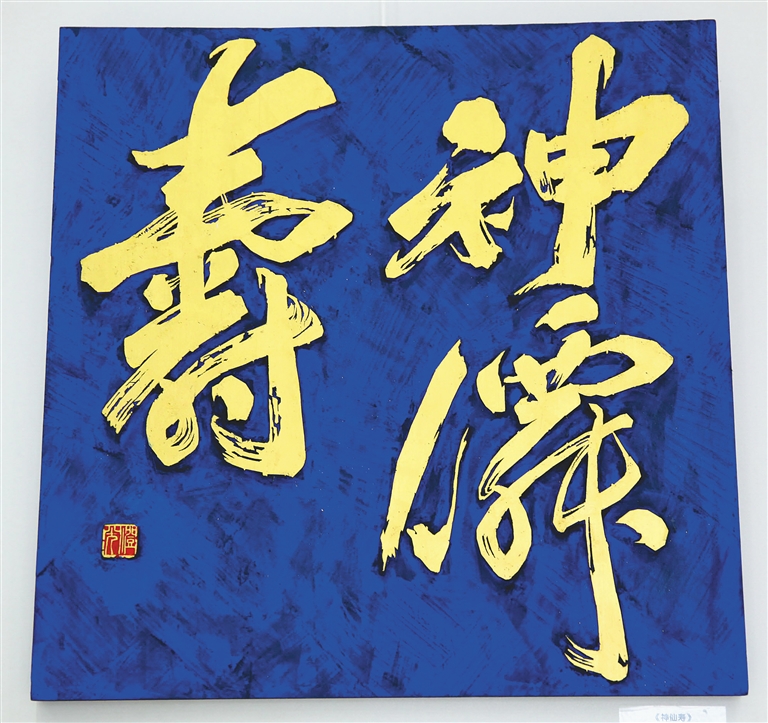 神僊
壽
《神仙寿》